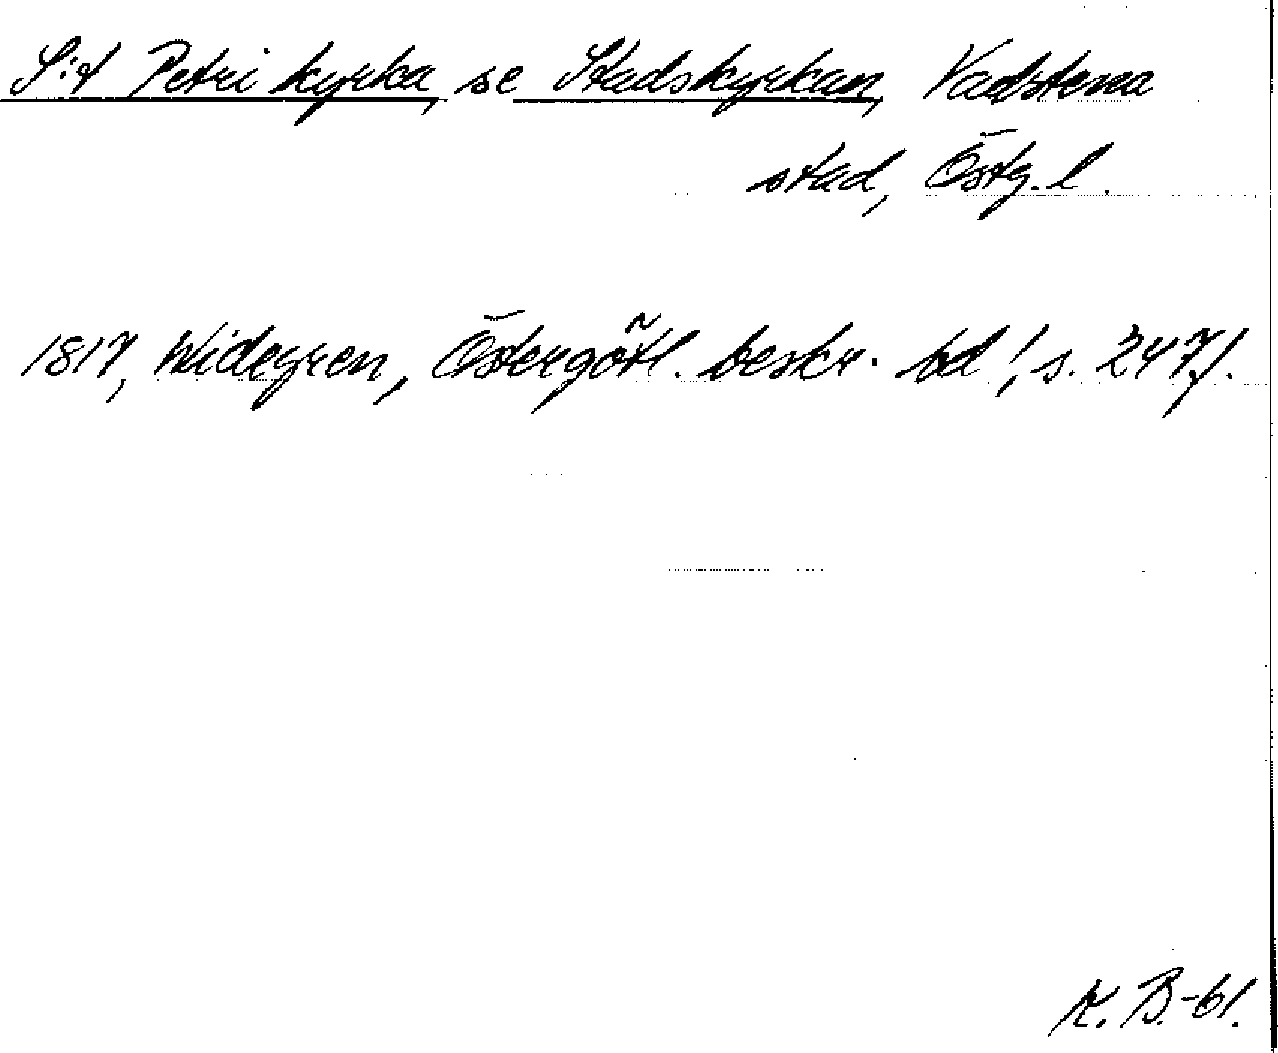 S:t Petri kyrka, se Stadskyrkan, Vadstena
stad, Östg. l.
1817, Widegren, Östergötl. beskr. bd 1, s. 247f.
K. B-61.